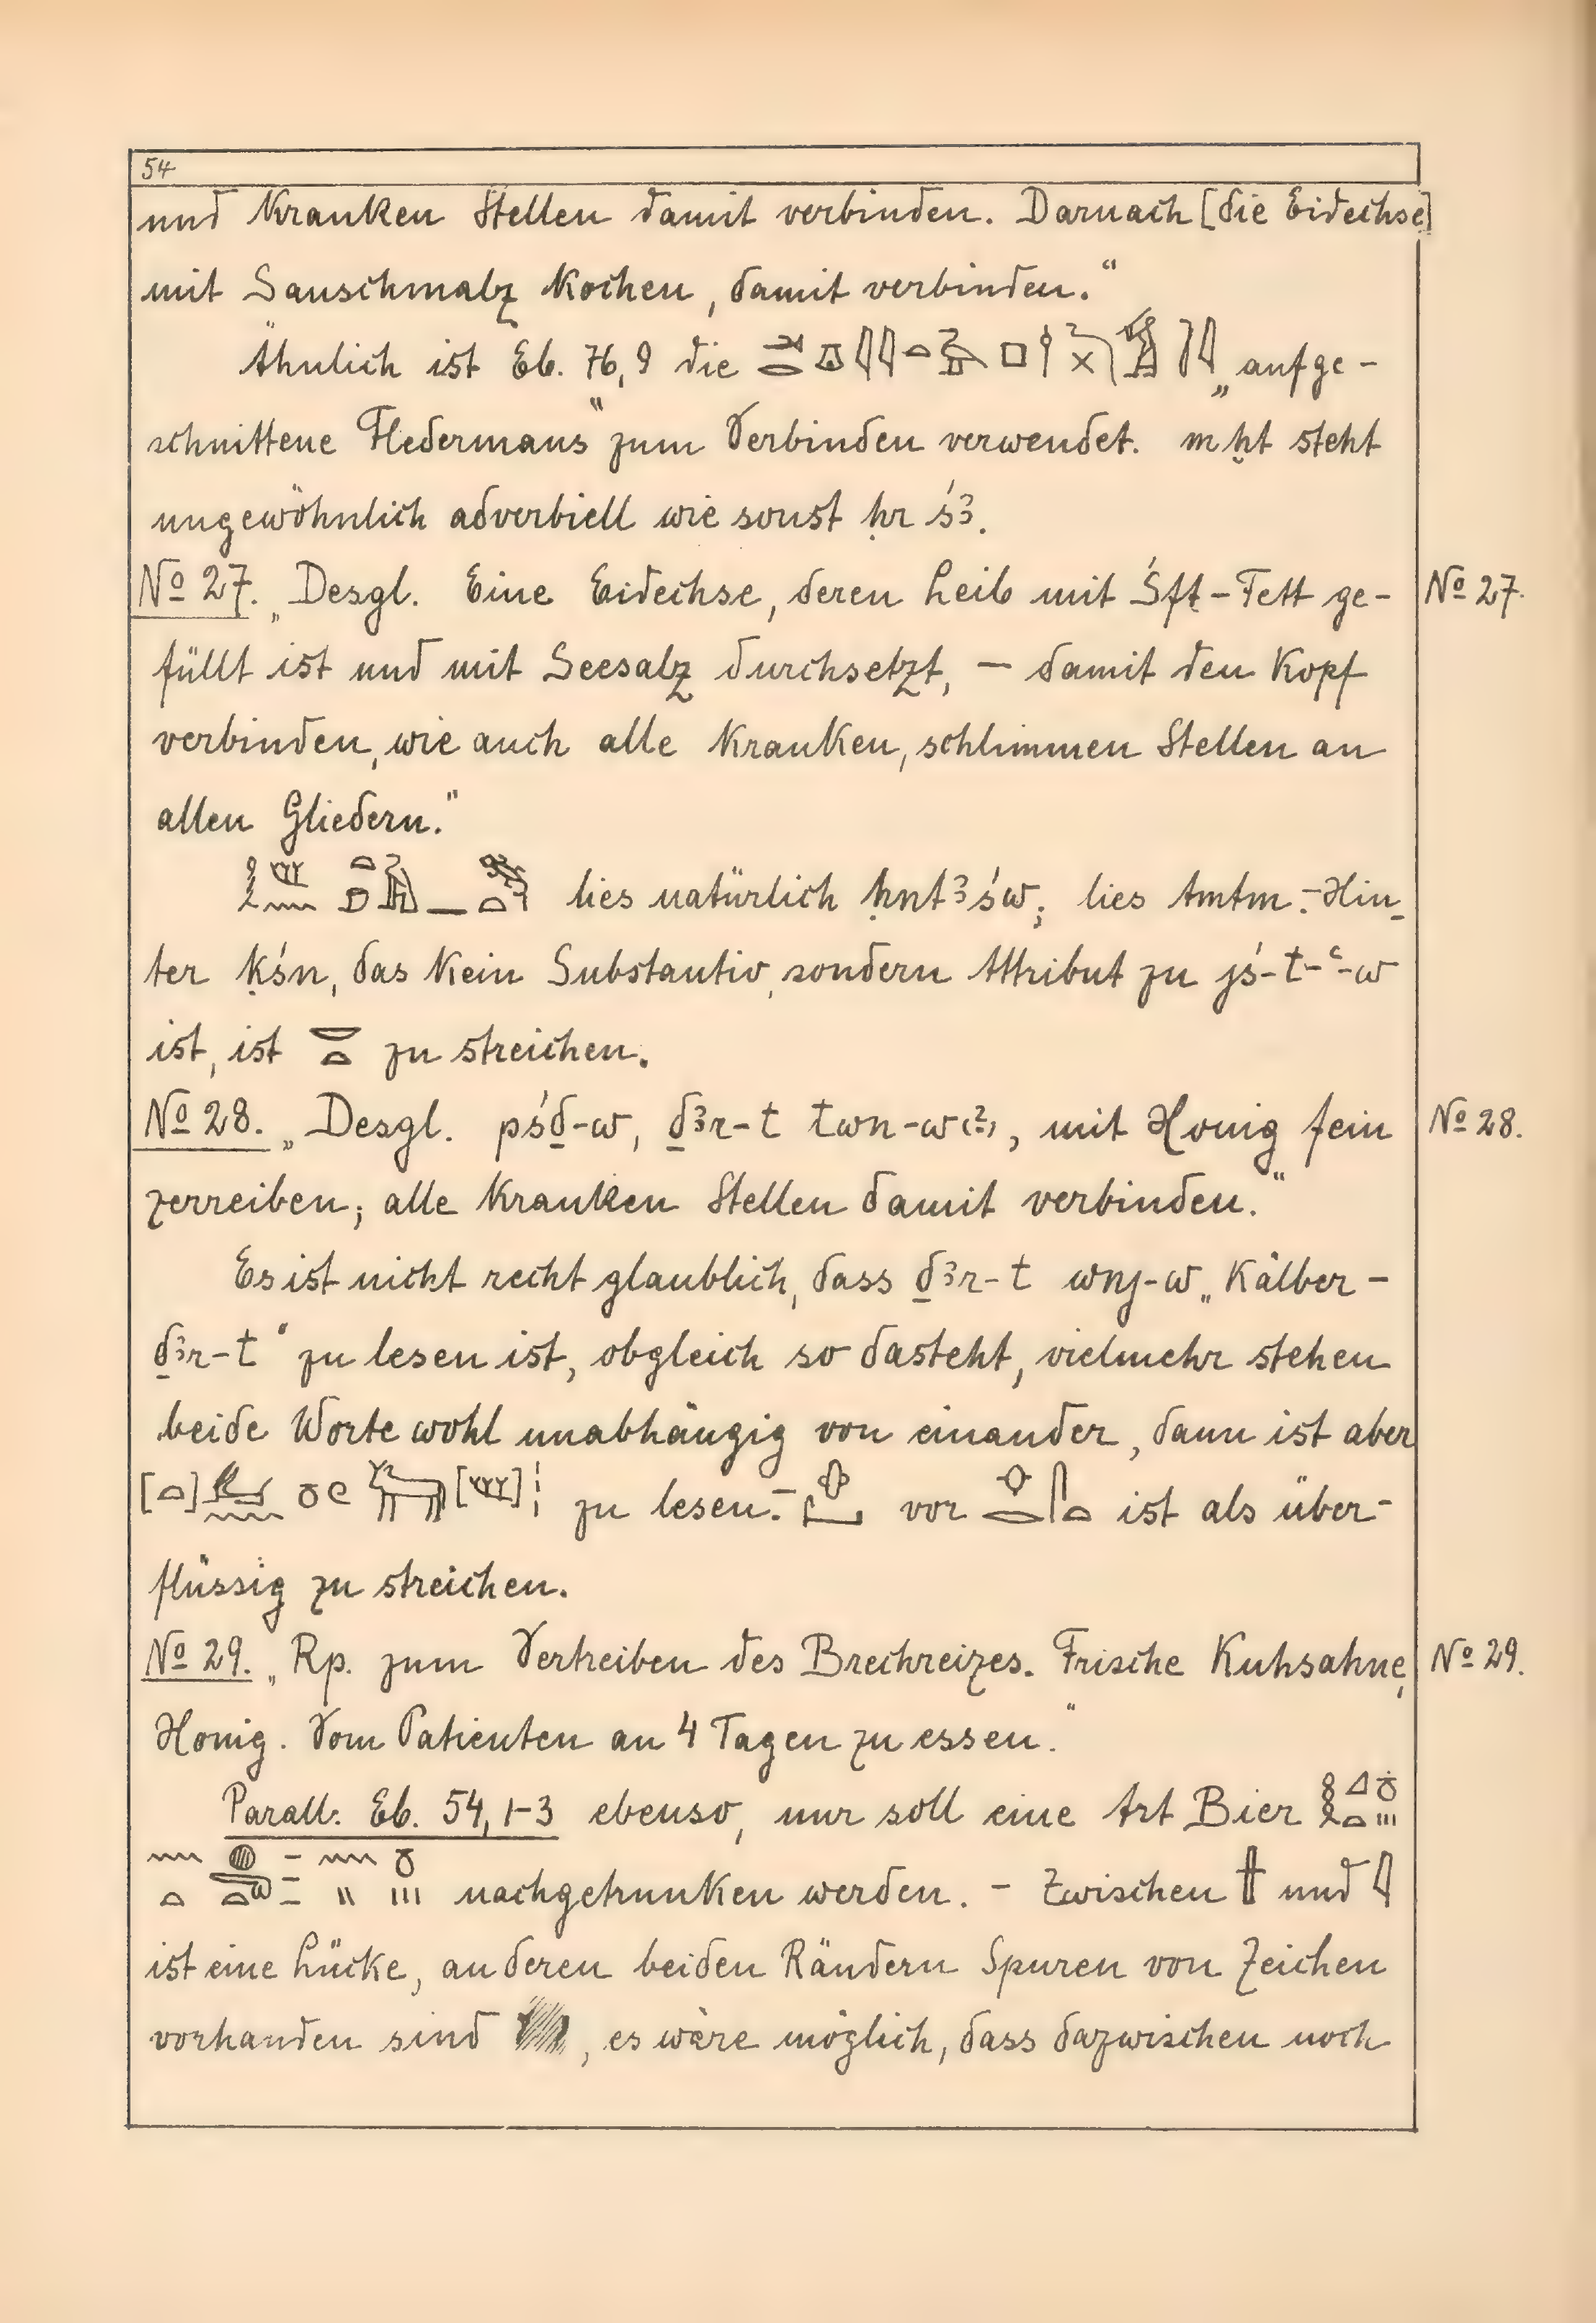 54
und kranken Stellen damit verbinden. Darnach [die Eidechse]
mit Sauschmalz kochen, damit verbinden.“
Ähnlich ist Eb. 76,9 die „aufge-
schnittene Fledermaus“ zum Verbinden verwendet. m ḫt steht
ungewöhnlich adverbiell wie sonst ḥr śꜣ.
No 27. „Desgl. Eine Eidechse, deren Leib mit Śft-Fett ge- No 27.
füllt ist und mit Seesalz durchsetzt, — damit den Kopf
verbinden, wie auch alle kranken, schlimmen Stellen an
allen Gliedern.“
lies natürlich ḥntꜣśw; lies tmtm. – Hin-
ter ḳśn, das kein Substantiv, sondern Attribut zu jś-t-ꜥ-w
ist, ist zu streichen.
No 28. „Desgl. pśḏ-w, ḏꜣr-t twn-w(?), mit Honig fein No 28.
zerreiben; alle kranken Stellen damit verbinden.“
Es ist nicht recht glaublich, dass ḏꜣr-t wnj-w „Kälber-
ḏꜣr-t“ zu lesen ist, obgleich so dasteht, vielmehr stehen
beide Worte wohl unabhängig von einander, dann ist aber
zu lesen. – vor ist als über-
flüssig zu streichen.
No 29. „Rp. zum Vertreiben des Brechreizes. Frische Kuhsahne, No 29.
Honig. Vom Patienten an 4 Tagen zu essen.“
Parall: Eb. 54,1-3 ebenso, nur soll eine Art Bier
nachgetrunken werden. – Zwischen und
ist eine Lücke, an deren beiden Rändern Spuren von Zeichen
vorhanden sind, es wäre möglich, dass dazwischen noch